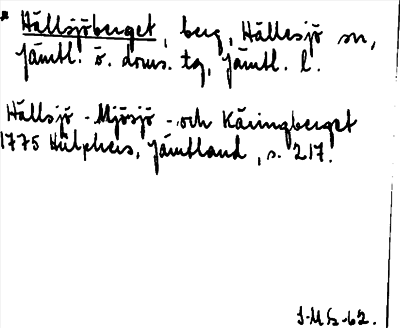 * Hällsjöberget, berg, Hällesjö sn,
Jämtl. ö. doms. tg, Jämtl. l.
Hällsjö - Mjösjö - och Käringberget
1775 Hülphers, Jämtland, s. 217.